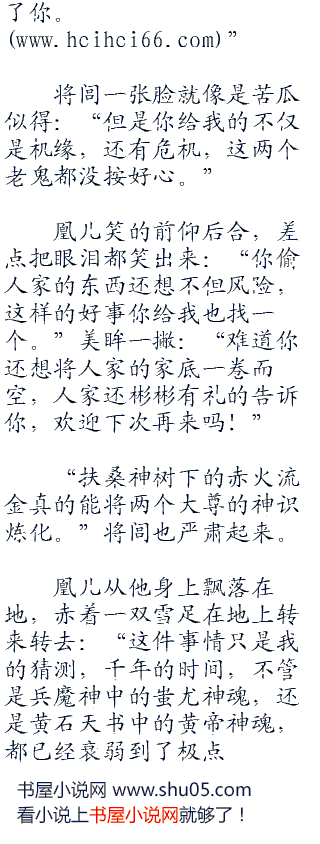 了你。
(www.hcihci66.com)”
将闾一张脸就像是苦瓜
似得：“但是你给我的不仅
是机缘，还有危机，这两个
老鬼都没按好心。”
凰儿笑的前仰后合，差
点把眼泪都笑出来：“你偷
人家的东西还想不但风险，
这样的好事你给我也找一
个。”美眸一撇：“难道你
还想将人家的家底一卷而
空，人家还彬彬有礼的告诉
你，欢迎下次再来吗！”
“扶桑神树下的赤火流
金真的能将两个大尊的神识
炼化。”将闾也严肃起来。
凰儿从他身上飘落在
地，赤着一双雪足在地上转
来转去：“这件事情只是我
的猜测，千年的时间，不管
是兵魔神中的蚩尤神魂，还
是黄石天书中的黄帝神魂，
都已经衰弱到了极点
书屋小说网 www.shu05.com
看小说上书屋小说网就够了！